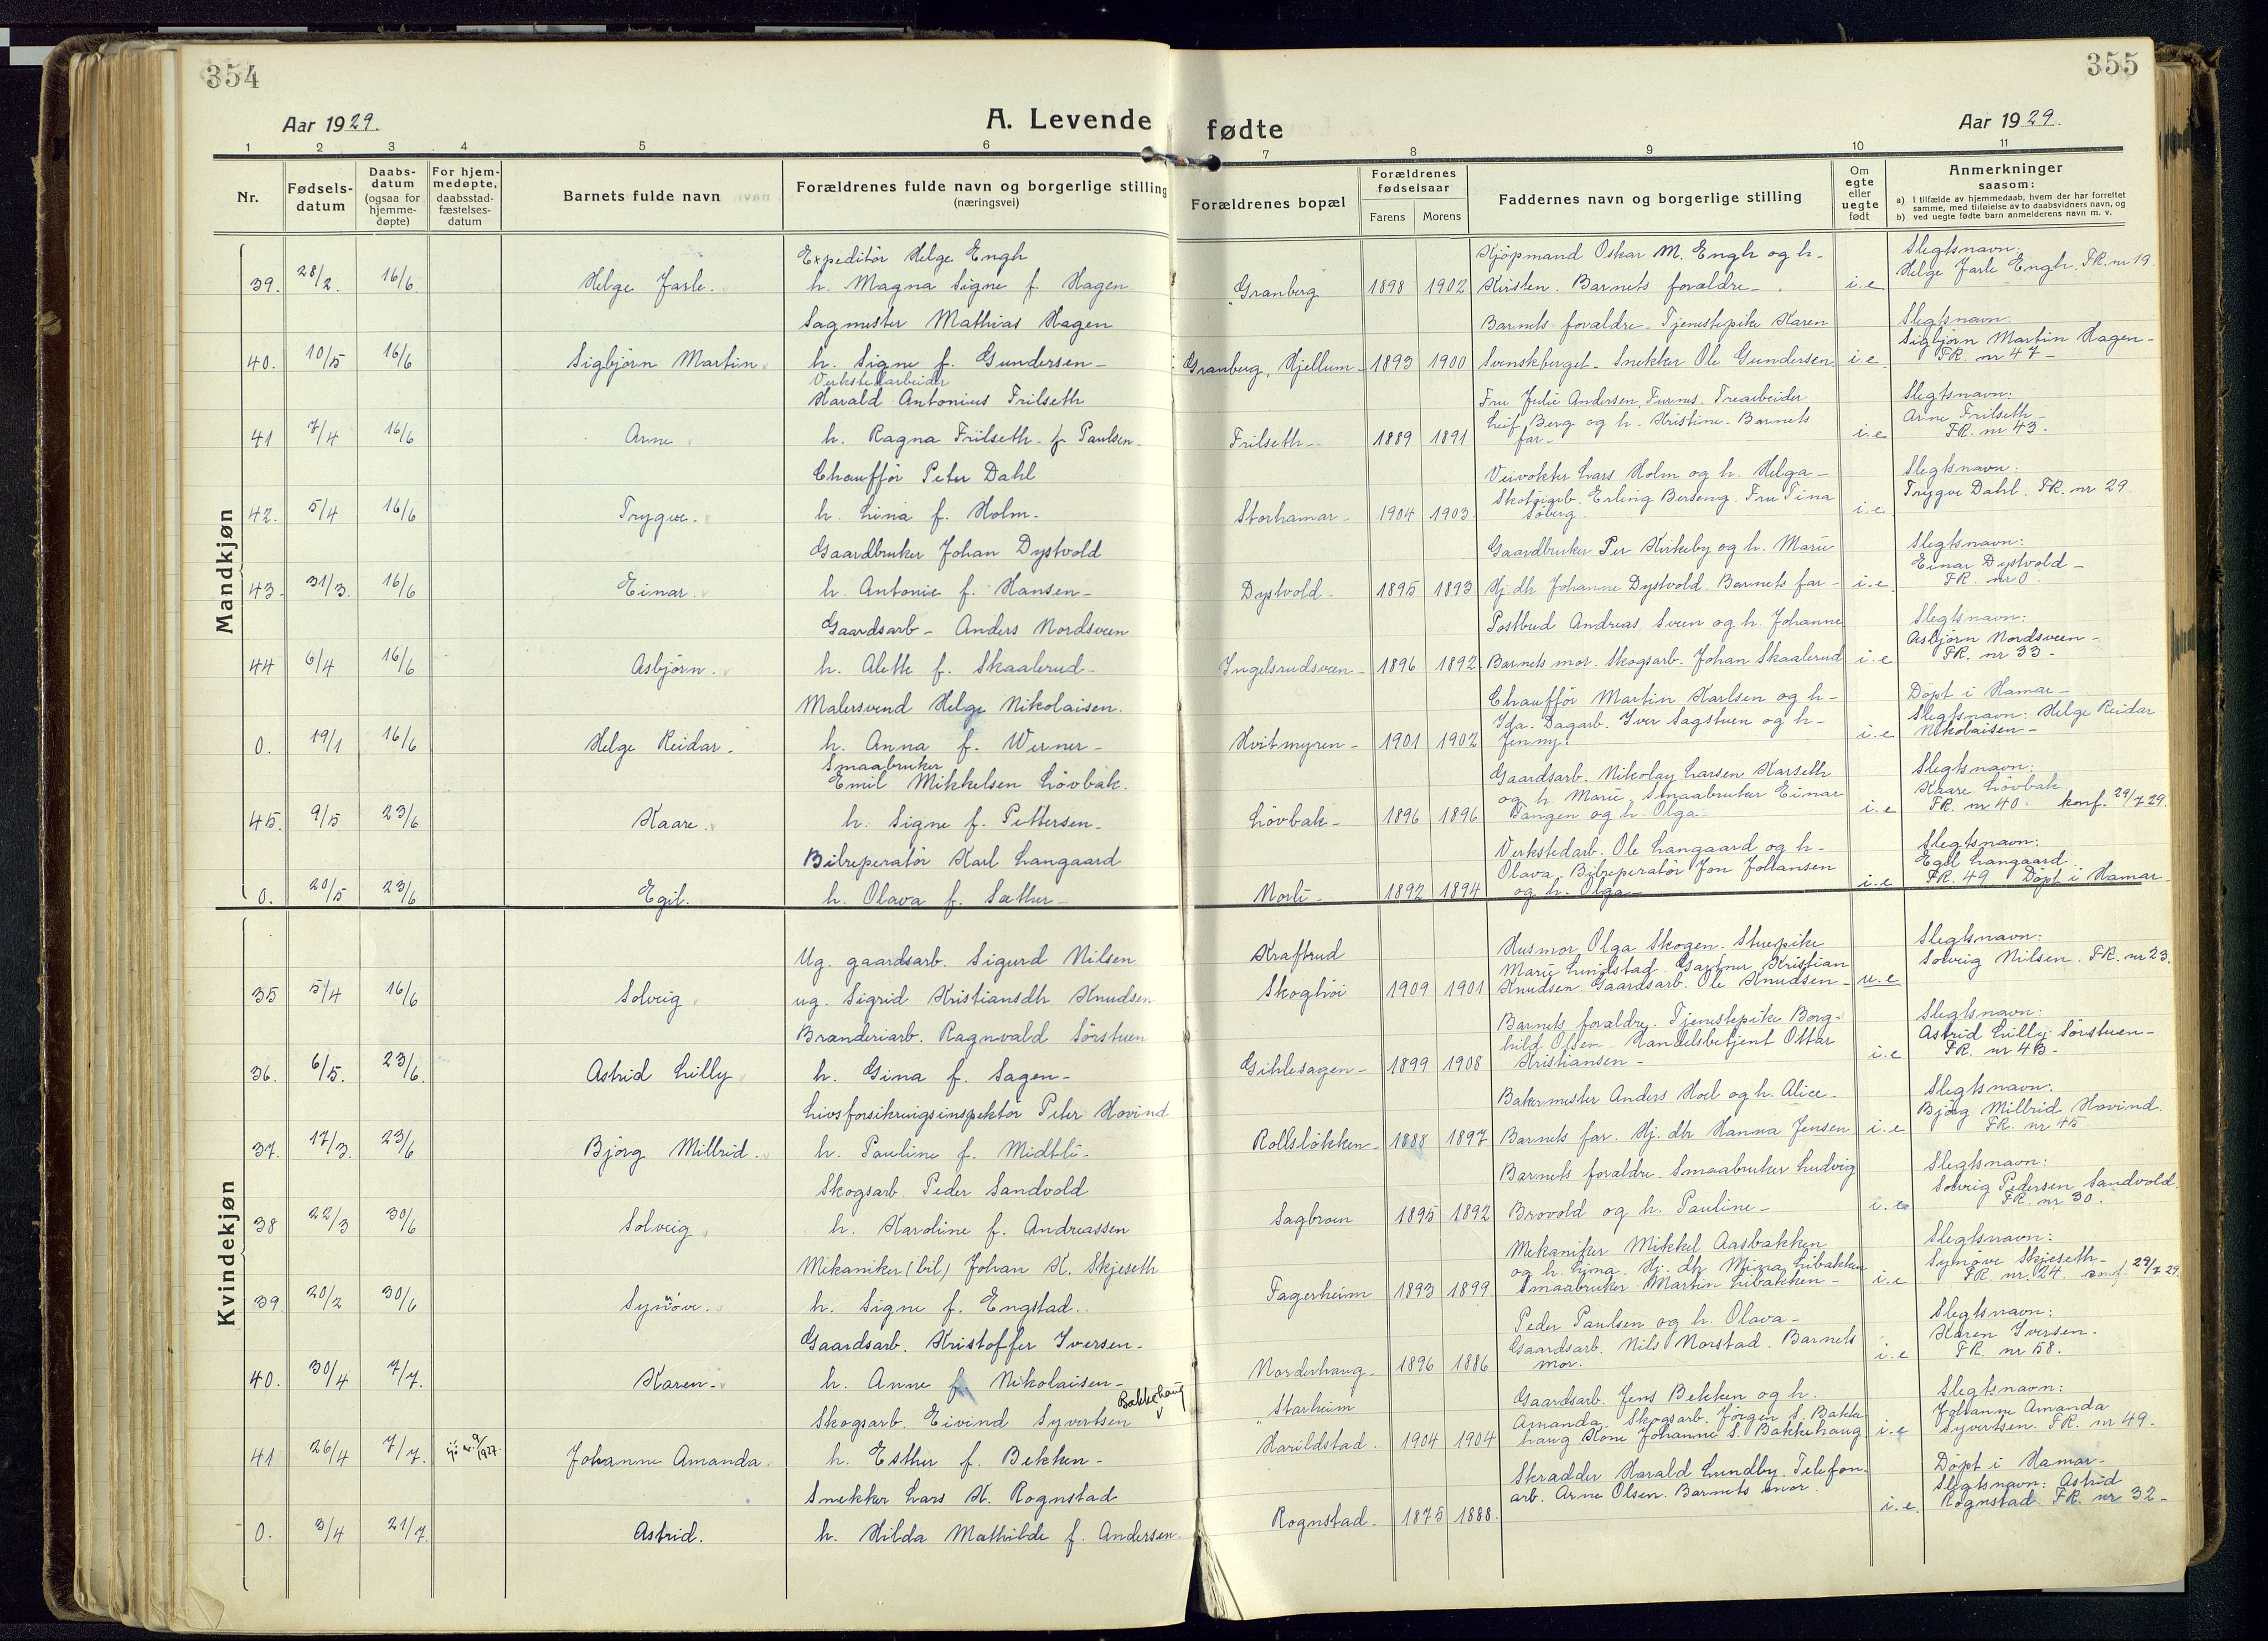 354
355
Aar 1929.
A. Levende
fødte
Aar 1929.
1 2 3 4 5 6 7 8 9 10 11
Nr.
Fødsels-
datum
Daabs-
datum
(ogsaa for
hjemme-
døpte)
For hjem-
medøpte,
daabsstad-
fæstelses-
datum
Barnets fulde navn
Forældrenes fulde navn og borgerlige stilling
(næringsvei)
Forældrenes bopæl
Forældrenes
fødselsaar
Farens Morens
Faddernes navn og borgerlige stilling
Om
egte
eller
uegte
født
Anmerkninger
saasom:
a) i tilfælde av hjemmedaab, hvem der har forrettet
samme, med tilføielse av to daabsvidners navn, og
b) ved uegte fødte barn anmelderens navn m. v.
Mandkjøn
39. 28/2. 16/6 Helge Jarle.
Expeditör Helge Engh
h. Magna Signe f. Hagen
Granberg 1898 1902
Kjöpmand Oskar M. Engh og h-
Kirsten. Barnets forældre-
i.e
Slegtsnavn:
Helge Jarle Engh. FR. nr 19
40. 10/5 16/6 Sigbjörn Martin
Sagmester Mathias Hagen
h. Signe f. Gundersen-
Granberg, Hjellum- 1893 1900
Barnets forældre. Tjenestepike Karen
Svenskberget. Snekker Ole Gundersen
i.e
Slegtsnavn:
Sigbjörn Martin Hagen-
FR. nr 47-
41 7/4 16/6 Arne
Verkstedarbeider
Harald Antonius Frilseth
h. Ragna Frilseth- f. Paulsen-
Frilseth- 1889 1891
Fru Julie Andersen, Furnes. Trearbeider
Leif Berg og h. Kristine. Barnets
far-
i.e
Slegtsnavn:
Arne Frilseth-
FR. nr 43.
42. 5/4 16/6 Trygve.
Chaufför Peter Dahl
h. Lina f. Holm-
Storhamar- 1904 1903
Veivokter Lars Holm og h. Helga-
Skotöiarb. Erling Berseng. Fru Tina
Söberg-
i.e
Slegtsnavn:
Trygve Dahl. FR. nr 29.
43. 31/3. 16/6 Einar.
Gaardbruker Johan Dystvold
h. Antonie f. Hansen-
Dystvold- 1895 1893
Gaardbruker Per Kirkeby og h. Marie
Hj. dh Johanne Dystvold. Barnets far-
i.e
Slegtsnavn:
Einar Dystvold-
FR. nr 0.
44 6/4 16/6 Asbjörn.
Gaardsarb- Anders Nordsveen
h. Alette f. Skaalerud-
Ingelsrudsveen- 1896 1892
Postbud Andreas Sveen og h. Johanne
Barnets mor. Skogsarb. Johan Skaalerud
i.e
Slegtsnavn:
Asbjörn Nordsveen-
FR. nr 33-
0. 19/1 16/6 Helge Reidar-
Malersvend Helge Nikolaisen.
h. Anna f. Werner-
Hvitmyren- 1901 1902
Chaufför Martin Karlsen og h-
Ida. Dagarb. Iver Sagstuen og h-
Jenny.
i.e
Döpt i Hamar-
Slegtsnavn: Helge Reidar
Nikolaisen-
45. 9/5 23/6 Kaare.
Smaabruker
Emil Mikkelsen Lövbak.
h. Signe f. Pettersen-
Lövbak- 1896 1896
Gaardsarb. Nikolay Larsen Karseth
og h. Marie. Smaabruker Einar
Tangen og h. Olga-
i.e
Slegtsnavn:
Kaare Lövbak
FR. nr 40. konf. 29/7 29.
0. 20/5 23/6 Egil.
Bilreperatör Karl Langaard
h. Olava f. Sæther-
Morli- 1892 1894
Verkstedarb. Ole Langaard og h-
Olava. Bilreperatör Jon Johansen
og h. Olga-
i.e
Slegtsnavn:
Egil Langaard
FR. 49 Döpt i Hamar-
Kvindekjøn
35 5/4 16/6 Solveig
Ug. gaardsarb. Sigurd Nilsen
ug. Sigrid Kristiansdh Knudsen
Kraftrud
Skoghöi 1909 1901
Husmor Olga Skogen. Stuepike
Marie Lundstad. Gartner Kristian
Knudsen. Gaardsarb. Ole Knudsen-
u.e
Slegtsnavn:
Solveig Nilsen. FR. nr 23.
36. 6/5. 23/6 Astrid Lilly
Brænderiarb. Ragnvald Sörstuen
h. Gina f. Sagen-
Gihlesagen- 1899 1908
Barnets forældre. Tjenestepike Borg-
hild Olsen. Handelsbetjent Ottar
Kristiansen-
i.e
Slegtsnavn:
Astrid Lilly Sörstuen-
FR. nr 43-
37. 17/3. 23/6 Björg Millrid.
Livsforsikringsinspektör Peter Hovind
h. Pauline f. Midtli-
Rollslökken- 1888 1897
Bakermester Anders Hoel og h. Alice-
Barnets far. Hj. dh Hanna Jensen
i.e
Slegtsnavn:
Björg Millrid Hovind.
FR. nr 45.
38 22/3 30/6 Solveig
Skogsarb. Peder Sandvold
h. Karoline f. Andreassen
Sagbroen 1895 1892
Barnets forældre. Smaabruker Ludvig
Brovold og h. Pauline-
i.e
Slegtsnavn:
Solveig Pedersen Sandvold.
FR. nr 30.
39. 20/2 30/6 Synöve.
Mekaniker (bil) Johan K. Skjeseth
h. Signe f. Engstad.
Fagerheim 1893 1899
Mekaniker Mikkel Aasbakken
og h. Lina. Hj. dh Mina Libakken
Smaabruker Martin Libakken-
i.e
Slegtsnavn:
Synöve Skjeseth-
FR. nr. 24. 29/7 29.
40. 30/4 7/7. Karen-
Gaardsarb. Kristoffer Iversen-
h. Anne f. Nikolaisen-
Norderhaug- 1896 1886
Peder Paulsen og h. Olava-
Gaardsarb. Nils Morstad. Barnets
mor.
i.e
Slegtsnavn:
Karen Iversen.
FR. nr 58.
41 26/4 7/7. Johanne Amanda.
Skogsarb. Eivind Syvertsen Bakkehaug
h. Esther f. Bekken-
Starheim
Harildstad. 1904 1904
Gaardsarb. Jens Bekken og h.
Amanda. Skogsarb. Jörgen S. Bakke-
haug Kone Johanne S. Bakkehaug
i.e
Slegtsnavn:
Johanne Amanda
Syvertsen. FR. nr 49.
0. 3/4 21/7. Astrid.
Snekker Lars K. Rognstad
h. Hilda Mathilde f. Andersen-
Rognstad- 1875 1888.
Skrædder Harald Lundby. Telefon-
arb. Arne Olsen. Barnets mor.
i.e
Döpt i Hamar-
Slegtsnavn: Astrid
Rognstad FR. nr 32-